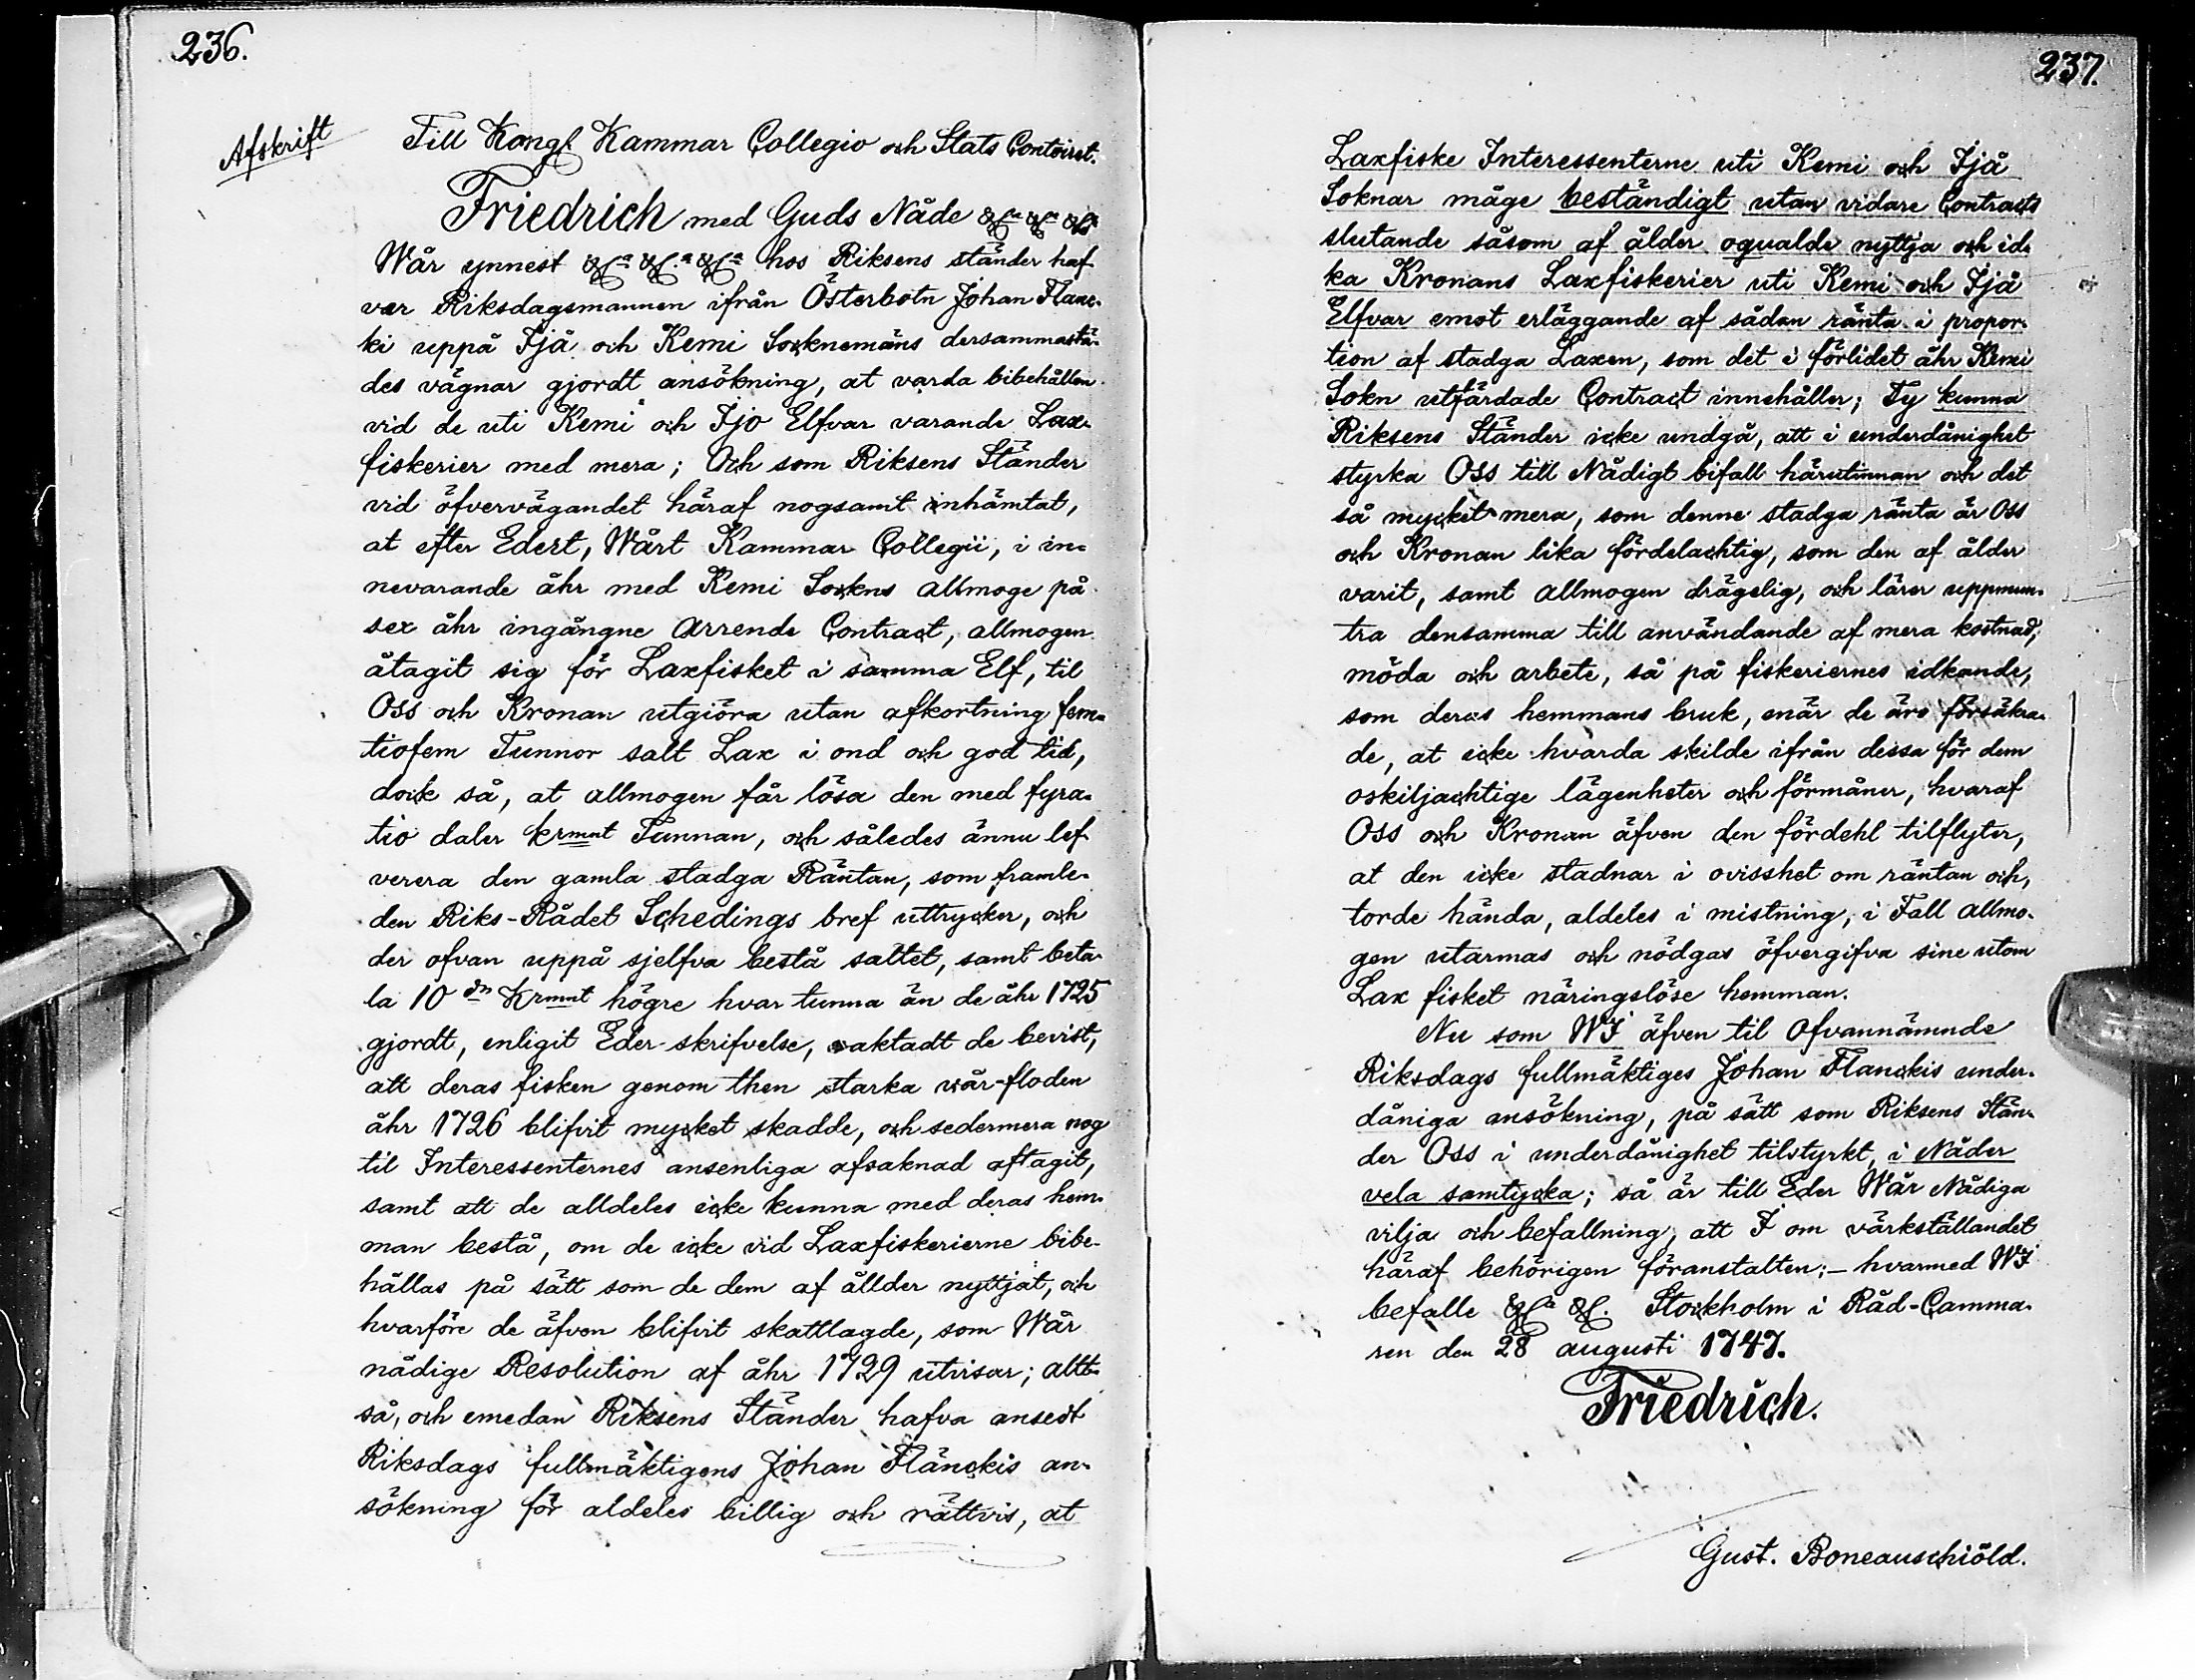 236.
Afskrift
Till Kongl Kammar Collegio och Stats Contoiret.
Friedrich med Guds Nåde &c.a &c.a &c.a
Wår ynnest &c.a &c.a &c.a hos Riksens ständer haf
ver Riksdagsmannen ifrån Österbotn Johan Flanc-
ki uppå Ijå och Kemi Socknemäns dersammastä-
des vägnar gjordt ansökning, at varda bibehållen
vid de uti Kemi och Ijo Elfvar varande Lax-
fiskerier med mera; Och som Riksens Ständer
vid öfvervägandet häraf nogsamt inhämtat,
at efter Edert, Wårt Kammar Collegii, i in-
nevarande åhr med Kemi Sockns allmoge på
sex åhr ingångne Arrende Contract, allmogen
åtagit sig för Laxfisket i samma Elf, til
Oss och Kronan utgiöra utan afkortning fem-
tiofem Tunnor salt Lax i ond och god tid,
dock så, at allmogen får lösa den med fyra-
tio daler krmnt Tunnan, och således ännu lef
verera den gamla stadga Räntan, som framle-
den Riks-Rådet Schedings bref uttrycker, och
der ofvan uppå sjelfva bestå saltet, samt beta-
la 10 dr Krmnt högre hvar tunna än de åhr 1725
gjordt, enligit Eder skrifvelse, oaktadt de bevist,
att deras fisken genom then starka vår-floden
åhr 1726 blifvit mycket skadde, och sedermera nog
til Interessenternes ansenliga afsaknad aftagit,
samt att de alldeles icke kunna med deras hem-
man bestå, om de icke vid Laxfiskerierne bibe-
hållas på sätt som de dem af ållder nyttjat, och
hvarföre de äfven blifvit skattlagde, som Wår
nådige Resolution af åhr 1729 utvisar; allt-
så, och emedan Riksens Ständer hafva ansedt
Riksdags fullmäktigens Johan Flänckis an-
sökning för aldeles billig och rättvis, at
237.
Laxfiske Interessenterne uti Kemi och Ijå
Soknar måge beständigt utan vidare Contracts
slutande såsom af ålder ogualde nyttja och id-
ka Kronans Laxfiskerier uti Kemi och Ijå
Elfvar emot erläggande af sådan ränta i propor-
tion af stadga Laxen, som det i förlidet åhr Kemi
Sokn utfärdade Contract innehåller; Ty kunna
Riksens Ständer icke undgå, att i underdånighet
styrka Oss till Nådigt bifall härutinnan och det
så mycket mera, som denne stadga ränta är Oss
och Kronan lika fördelachtig, som den af ålder
varit, samt Allmogen drägelig, och lärer uppmun-
tra densamma till användande af mera kostnad,
möda och arbete, så på fiskeriernes idkande,
som deras hemmans bruk, enär de äro försäkra-
de, at icke hvarda skilde ifrån dessa för dem
oskiljachtige lägenheter och förmåner, hvaraf
Oss och Kronan äfven den fördehl tilflyter,
at den icke stadnar i ovisshet om räntan och,
torde hända, aldeles i mistning, i Fall allmo-
gen utarmas och nödgas öfvergifva sine utom
Lax fisket näringslöse hemman.
Nu som WI äfven til ofvannämnde
Riksdags fullmäktiges Johan Flanckis under-
dåniga ansökning, på sätt som Riksens Stän-
der Oss i underdånighet tilstyrkt, i Nåder
vela samtycka; så är till Eder Wår Nådiga
vilja och befallning, att I om värkställandet
häraf behörigen föranstalten;- hvarmed WI
befalle &c.a &c. Stockholm i Råd-Camma-
ren den 28 augusti 1747.
Friedrich.
Gust. Boneauschiöld.